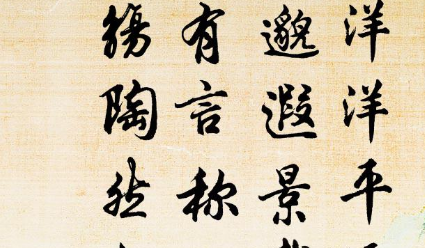 洋洋平
邈遐景
有言称
觴陶然